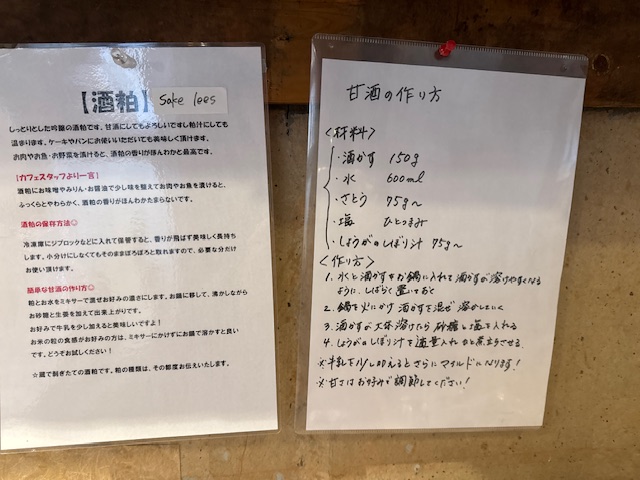 【酒粕】 Sake lees
しっとりとした吟醸の酒粕です。甘酒にしてもよろしいですし粕汁にしても
温まります。ケーキやパンにお使いいただいても美味しく頂けます。
お肉やお魚・お野菜を漬けると、酒粕の香りがほんわかと最高です。
【カフェスタッフより一言】
酒粕にお味噌やみりん・お醤油で少し味を整えてお肉やお魚を漬けると、
ふっくらとやわらかく、酒粕の香りがほんわかたまらないです。
酒粕の保存方法◎
冷凍庫にジプロックなどに入れて保管すると、香りが飛ばず美味しく長持ち
します。小分けにしなくてもそのままぽろぽろと取れますので、必要な分だけ
お使い頂けます。
簡単な甘酒の作り方◎
粕とお水をミキサーで混ぜお好みの濃さにします。お鍋に移して、沸かしながら
お砂糖と生姜を加えて出来上がりです。
お好みで牛乳を少し加えると美味しいですよ！
お米の粒の食感がお好みの方は、ミキサーにかけずにお鍋で溶かすと良い
です。どうぞお試しください！
☆蔵で剝ぎたての酒粕です。粕の種類は、その都度お伝えいたします。
甘酒の作り方
<材料>
・酒かす 150g
・水 600ml
・さとう 75g〜
・塩 ひとつまみ
・しょうがのしぼり汁 75g〜
<作り方>
1、水と酒かすをお鍋に入れて酒かすが溶けやすくなる
ように、しばらく置いておく
2、鍋を火にかけ酒かすを混ぜ溶かしていく
3、酒かすが大体溶けたら砂糖と塩を入れる
4、しょうがのしぼり汁を適量入れひと煮立ちさせる
※牛乳を少し加えるとさらにマイルドになります！
※甘さはお好みで調節してください！